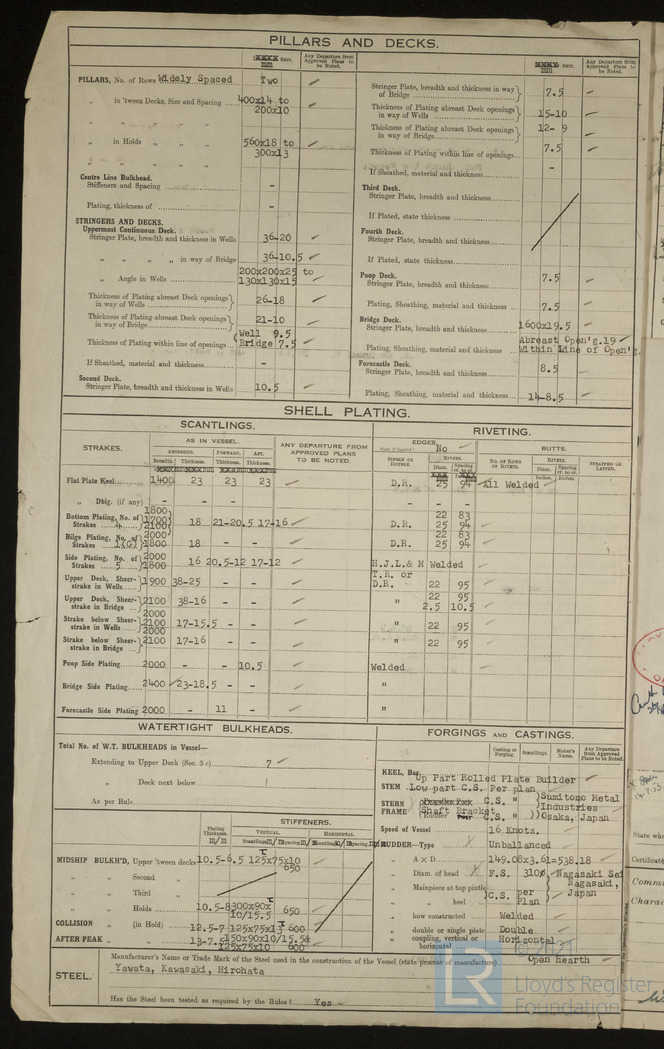 PILLARS AND DECKS.
mm SHIP. Any Departure from Approved Plans to be Noted.
PILLARS, No. of Rows Widely Spaced Two
„ in 'tween Decks, Size and Spacing 400x14 to
200x10
„ „ „ „
„ in Holds „ „ 560x18 to
300x13
„ „ „ „
Centre Line Bulkhead.
Stiffeners and Spacing -
Plating, thickness of -
STRINGERS AND DECKS.
Uppermost Continuous Deck.
Stringer Plate, breadth and thickness in Wells 36-20
„ „ „ „ in way of Bridge 36-10.5
„ Angle in Wells 200x200x25 to
130x130x15
Thickness of Plating abreast Deck openings in way of Wells 26-18
Thickness of Plating abreast Deck openings in way of Bridge 21-10
Thickness of Plating within line of openings Well 9.5
Bridge 7.5
If Sheathed, material and thickness -
Second Deck.
Stringer Plate, breadth and thickness in Wells 10.5
mm SHIP. Any Departure from Approved Plans to be Noted.
Stringer Plate, breadth and thickness in way of Bridge 7.5
Thickness of Plating abreast Deck openings in way of Wells 15-10
Thickness of Plating abreast Deck openings in way of Bridge 12- 9
Thickness of Plating within line of openings 7.5
If Sheathed, material and thickness -
Third Deck.
Stringer Plate, breadth and thickness
If Plated, state thickness
Fourth Deck.
Stringer Plate, breadth and thickness
If Plated, state thickness
Poop Deck.
Stringer Plate, breadth and thickness 7.5
Plating, Sheathing, material and thickness 7.5
Bridge Deck.
Stringer Plate, breadth and thickness 1600x19.5
Plating, Sheathing, material and thickness Abreast Open'g.19
Within Line of Open'g.
Forecastle Deck.
Stringer Plate, breadth and thickness 8.5
Plating, Sheathing, material and thickness 14-8.5
SHELL PLATING.
SCANTLINGS.
STRAKES.
AS IN VESSEL.
AMIDSHIPS. FORWARD. AFT.
Breadth Thickness. Thickness. Thickness.
ANY DEPARTURE FROM APPROVED PLANS TO BE NOTED.
RIVETING.
EDGES. No
SINGLE OR DOUBLE. RIVETS. Diam. Spacing cr. to cr.
BUTTS.
NO. OF ROWS OF RIVETS. RIVETS. Diam. Spacing cr. to cr. STRAPPED OR LAPPED.
Flat Plate Keel 1400 23 23 23 D.R. 25 94 All Welded
„ Dblg. (if any) - - - - - -
Bottom Plating, No. of Strakes 4 1800
1700
2100 18 21-20.5 17-16 D.R. 22 83
25 94
Bilge Plating, No. of Strakes 1(G) 2000
1800 18 - - D.R. 22 83
25 94
Side Plating, No. of Strakes 5 2000
1800 16 20.5-12 17-12 H.J.L.& M Welded
Upper Deck, Sheerstrake in Wells 1900 38-25 - - T.R. or
D.R. 22 95
Upper Deck, Sheerstrake in Bridge 2100 38-16 - - " 22 95
2.5 10.5
Strake below Sheerstrake in Wells 2000
2100 17-15.5 - - " 22 95
Strake below Sheerstrake in Bridge 2000
2100 17-16 - - " 22 95
Poop Side Plating 2000 - - 10.5 Welded
Bridge Side Plating 2400 23-18.5 - - "
Forecastle Side Plating 2000 - 11 "
WATERTIGHT BULKHEADS.
Total No. of W.T. BULKHEADS in Vessel—
Extending to Upper Deck (Sec. 3 c) 7
„ Deck next below
As per Rule
STIFFENERS.
Plating Thickness. m/m VERTICAL. HORIZONTAL.
Scantlings Spacing Scantlings Spacing
MIDSHIP BULKH'D, Upper 'tween decks 10.5-6.5 125x75x10 650
„ „ Second „
„ „ Third „
„ „ Holds 10.5-8 300x90x
10/15.5 650
COLLISION „ (in Hold) 12.5-7 125x75x13 600
AFTER PEAK „ „ 13-7.5 150x90x10/15.5
125x75x10 600
FORGINGS AND CASTINGS.
Casting or Forging. Scantlings. Maker's Name. Any Departure from Approved Plans to be Noted.
KEEL, Bar Up Part Rolled Plate Builder
STEM Low part C.S. Per plan
STERN FRAME C.S. " Sumitomo Metal
Shaft Bracket Industries
Rudder Post C.S. " Osaka, Japan
Speed of Vessel 16 Knots.
RUDDER—Type Unballanced
„ A x D 149.08x3.61=538.18
„ Diam. of head F.S. 310ϕ Nagasaki Sei
„ Mainpiece at top pintle C.S. per Plan Nagasaki, Japan
„ „ heel
„ how constructed Welded
„ double or single plate Double
„ coupling, vertical or horizontal Horizontal
STEEL.
Manufacturer's Name or Trade Mark of the Steel used in the construction of the Vessel (state process of manufacture) Open hearth
Yawata, Kawasaki, Hirohata
Has the Steel been tested as required by the Rules? Yes
LR
© 2021
Lloyd's Register
Foundation
State whe
Certificate